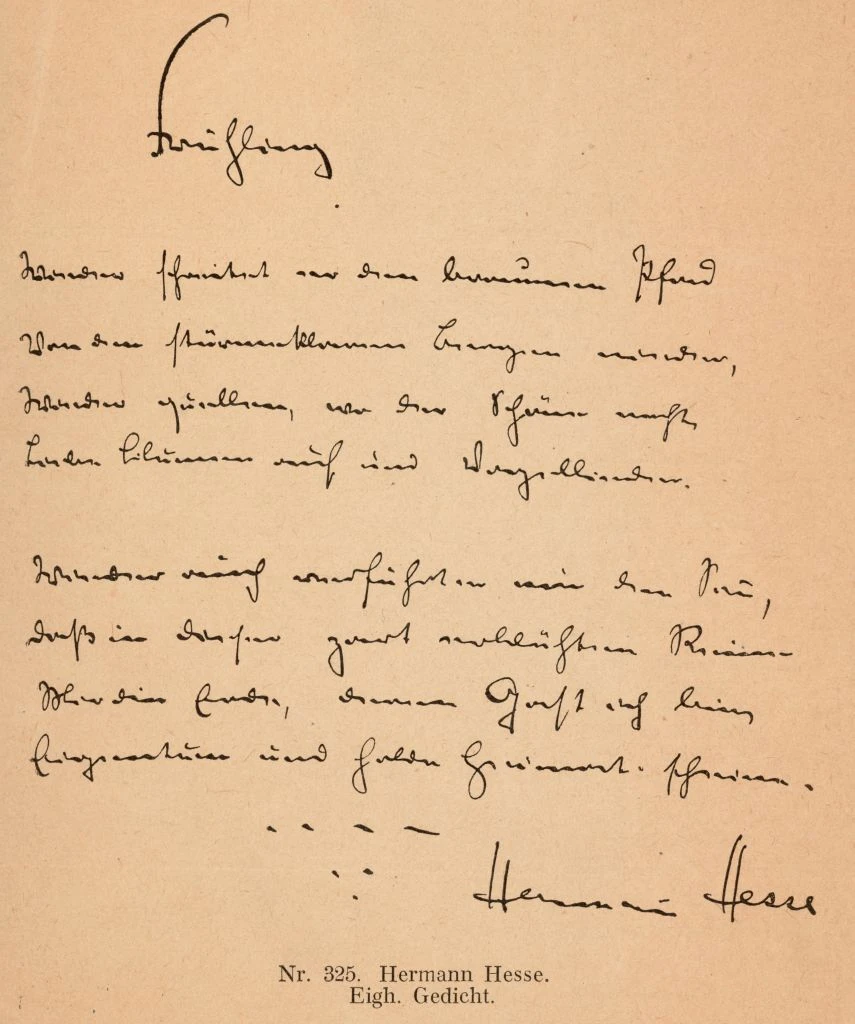 Frühling
.
Wieder schreitet er den braunen Pfad
Von den stürmeklaren Bergen nieder,
Wieder quellen, wo der Schöne naht,
Liebe Blumen auf und Vogellieder.
Wieder auch verführt er mir den Sinn,
daß in dieser zart erblühten Reine
Mir die Erde, deren Gast ich bin,
Eigentum und holde Heimat scheine.
Hermann Hesse
Nr. 325. Hermann Hesse.
Eigh. Gedicht.